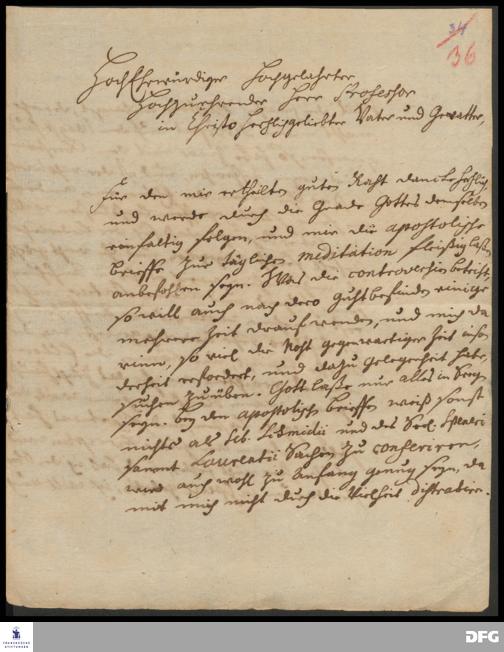 34
36
HochEhrwürdiger Hochgelahrter
Hochzuehrender Herr Professor
in Christo Hertzlichgeliebter Vater und Gevatter,
Für den mir ertheilten guten Raht dancke hertzlich
und werde durch die Gnade Gottes demselben
einfältig folgen, und mir die apostolische
brieffe zur täglichen meditation fleißig laßen
anbefohlen seyn. Was die controversien betrifft
so will auch nach dero guhtbefinden einige
mehrere Zeit drauf wenden, und mich da
rinn, so viel die Noht gegenwärtiger Zeit
erfordert, und dazu gelegenheit habe,
suchen zu üben. Gott laße nur alles in Seegen
seyn. bey den apostolisch brieffen weiß sonst
nichts als Seb. Schmidii und des Seel. Speneri
Laurentii Sachen zu conferiren,
wird auch wohl zu Anfang genug seyn, da
mit mich nicht durch die Vielheit distrahire.
FRANCKESCHE
STIFTUNGEN
DFG